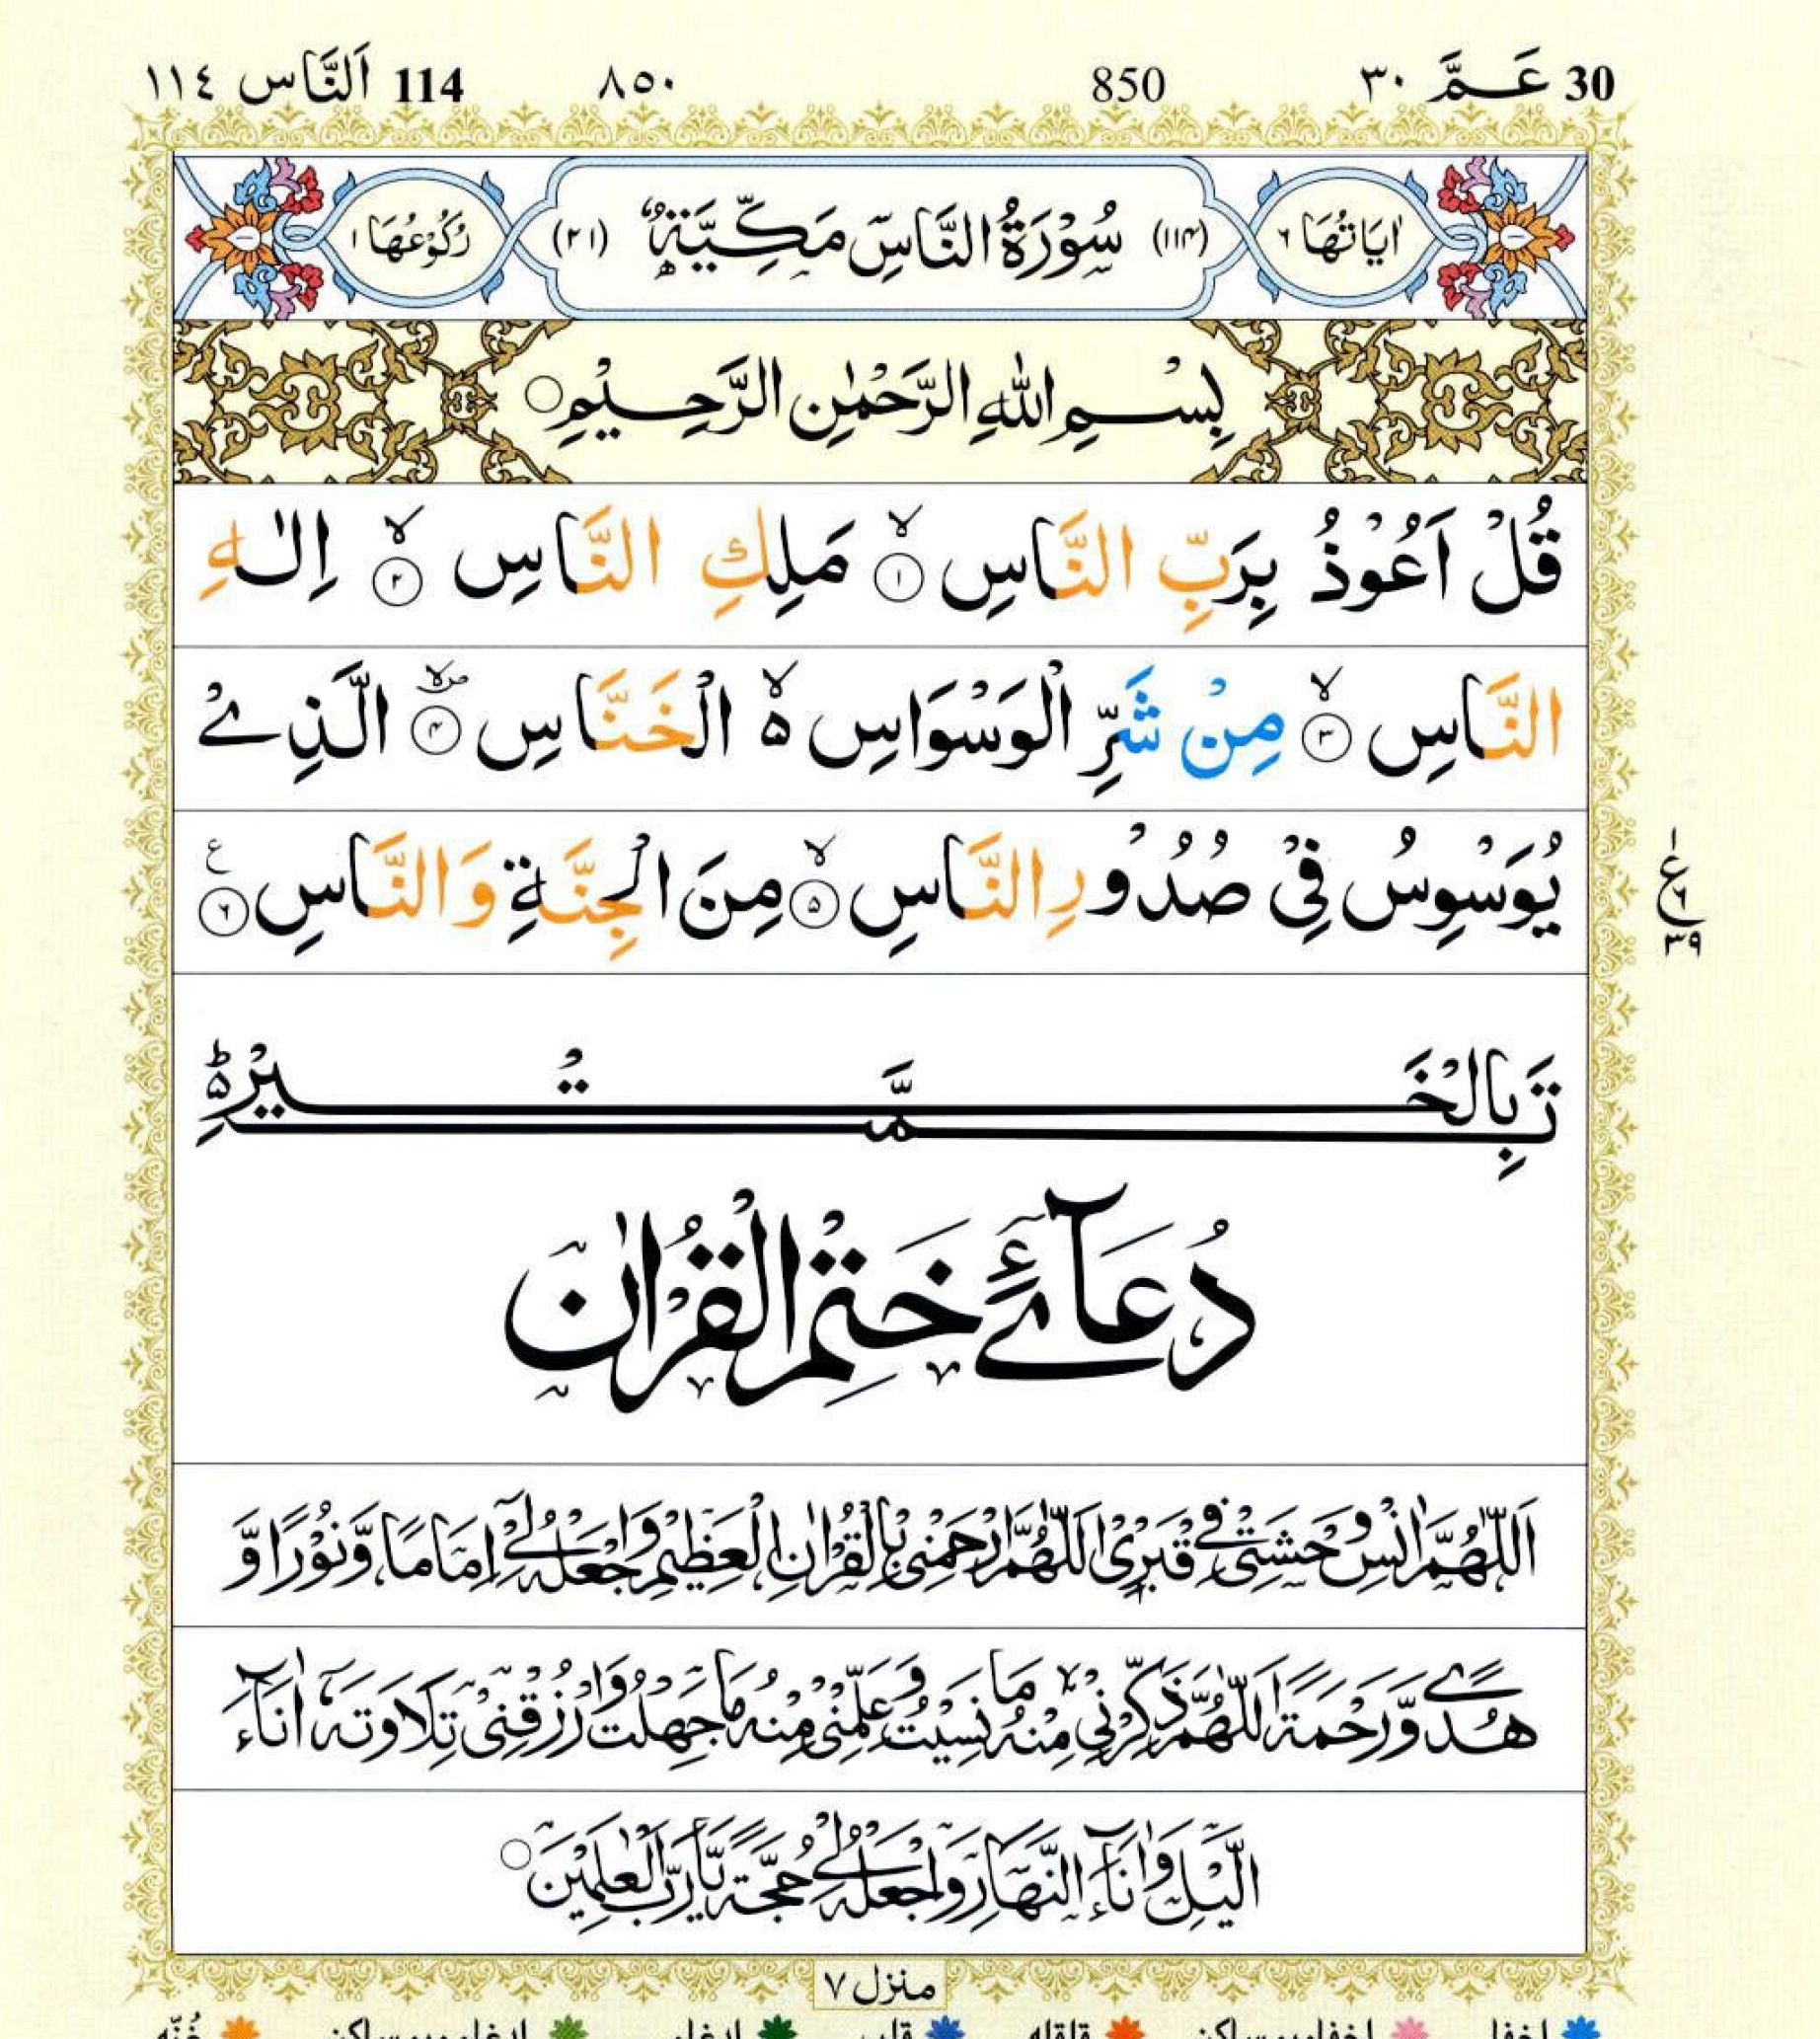 30 عَمَّ ٣٠ 850 ٨٥٠ 114 اَلنَّاس ١١٤
اٰيَاتُهَا ٦ (١١٤) سُوْرَةُ النَّاسِ مَكِّيَّةٌ (٢١) رُكُوْعُهَا ١
بِسْمِ اللّٰهِ الرَّحْمٰنِ الرَّحِيْمِ
قُلْ اَعُوْذُ بِرَبِّ النَّاسِ ۙ﴿۱﴾ مَلِكِ النَّاسِ ۙ﴿۲﴾ اِلٰهِ
النَّاسِ ۙ﴿۳﴾ مِنْ شَرِّ الْوَسْوَاسِ ۙ۬ الْخَنَّاسِ ۪ۙ﴿۴﴾ الَّذِیْ
يُوَسْوِسُ فِیْ صُدُوْرِ النَّاسِ ۙ﴿۵﴾ مِنَ الْجِنَّةِ وَ النَّاسِ ﴿۶﴾ ع
ع ١ ٦ ٣٩
تَمَّتْ بِالْخَيْرِ
دُعَآئے خَتْمِ الْقُرْاٰن
اَللّٰهُمَّ اٰنِسْ وَحْشَتِیْ فِیْ قَبْرِیْ اَللّٰهُمَّ ارْحَمْنِیْ بِالْقُرْاٰنِ الْعَظِيْمِ وَاجْعَلْهُ لِیْٓ اِمَامًا وَّنُوْرًا وَّ
هُدًی وَّرَحْمَةً اَللّٰهُمَّ ذَكِّرْنِیْ مِنْهُ مَا نَسِيْتُ وَعَلِّمْنِیْ مِنْهُ مَا جَهِلْتُ وَارْزُقْنِیْ تِلَاوَتَهٗٓ اٰنَآءَ
الَّيْلِ وَاٰنَآءَ النَّهَارِ وَاجْعَلْهُ لِیْ حُجَّةً يَّا رَبَّ الْعٰلَمِيْنَ
منزل ٧
اخفا اخفا میم ساکن قلقله قلب ادغام ادغام میم ساکن غُنّه